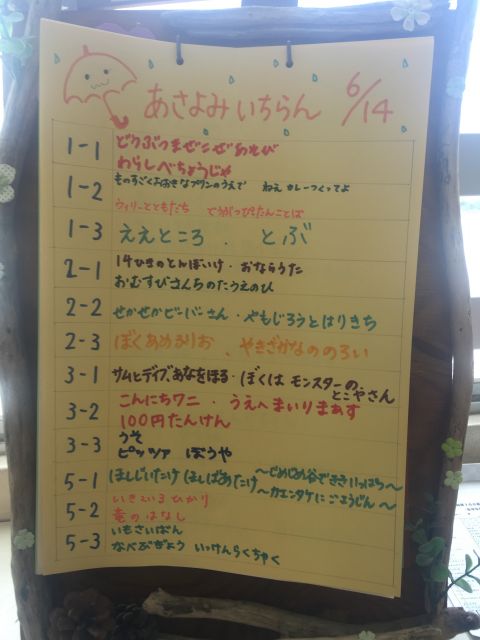 あさよみ いちらん 6/14
1-1 どうぶつまぜこぜあそび
わらしべちょうじゃ
1-2 ものすごくおおきなプリンのうえで ねえ カレーつくってよ
ウィリーとともだち
1-3 ええところ . とぶ
2-1 14ひきのとんぼいけ・おならうた
おむすびさんちのたうえのひ
2-2 せかせかビーバーさん・やもじろうとはりきち
2-3 ぼくあめふりお 、やきざかなののろい
3-1 サムとデイブ、あなをほる・ぼくは モンスターの
とこやさん
3-2 こんにちワニ ・ うえへまいりまぁす
100円たんけん
3-3 うそ
ピッツァ ぼうや
5-1 ほしじいたけ ほしばあたけ 〜じめじめ谷でききいっぱつ〜
〜カエンタケにごようじん〜
5-2 いきている ひかり
竜のはなし
5-3 いもさいばん
なべぶぎょう いっけんらくちゃく